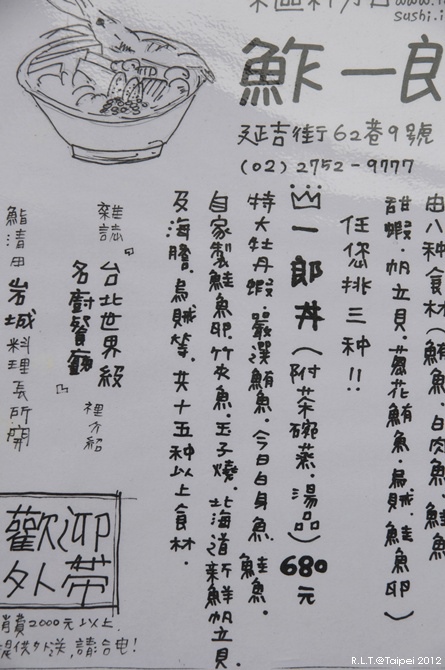 sushi.i
鮓一郎
延吉街62巷9號
(02)2752-9777
由八種食材(鮪魚．白肉魚．鮭魚
甜蝦．帆立貝．蔥花鮪魚．烏賊．鮭魚卵)
任您挑三種!!
一郎丼(附茶碗蒸．湯品)680元
特大牡丹蝦．嚴選鮪魚．今日白身魚．鮭魚．
自家製鮭魚卵．竹夾魚．玉子燒．北海道所鮮帆立貝．
及海膽．烏賊等．共十五種以上食材．
雜誌『台北世界級
名廚賢廚』裡介紹
鮨清田岩城料理長所開
歡迎
外帶
消費2000元以上.
提供外送,請合电!
R.L.T.@Taipei 2012